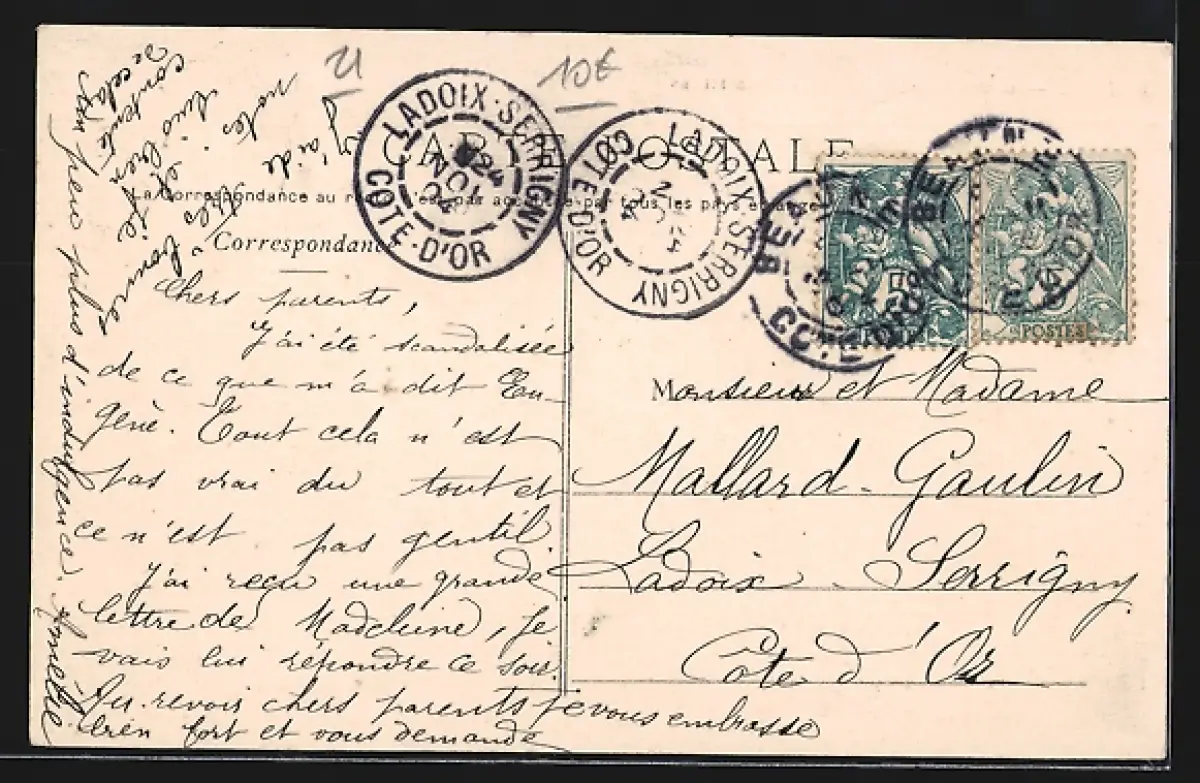 21
10€
CARTE POSTALE
La Correspondance au recto n'est pas acceptée par tous les pays étrangers
Correspondance
LADOIX-SERRIGNY
24
NOV
04
CÔTE-D'OR
LADOIX-SERRIGNY
CÔTE-D'OR
BEAUNE
CÔTE-D'OR
BEAUNE
CÔTE-D'OR
5
5
POSTES
Chers parents,
J'ai été scandalisée
de ce que m'a dit Eu-
gène. Tout cela n'est
pas vrai du tout et
ce n'est pas gentil.
J'ai reçu une grande
lettre de Madeleine, je
vais lui répondre ce soir.
Au revoir chers parents je vous embrasse
bien fort et vous demande
un peu plus d'indulgence. Amélie
J'ai de
très bonnes
notes et
suis bien
contente
de cela
Monsieur et Madame
Mallard-Gaulin
Ladoix-Serrigny
Côte d'Or